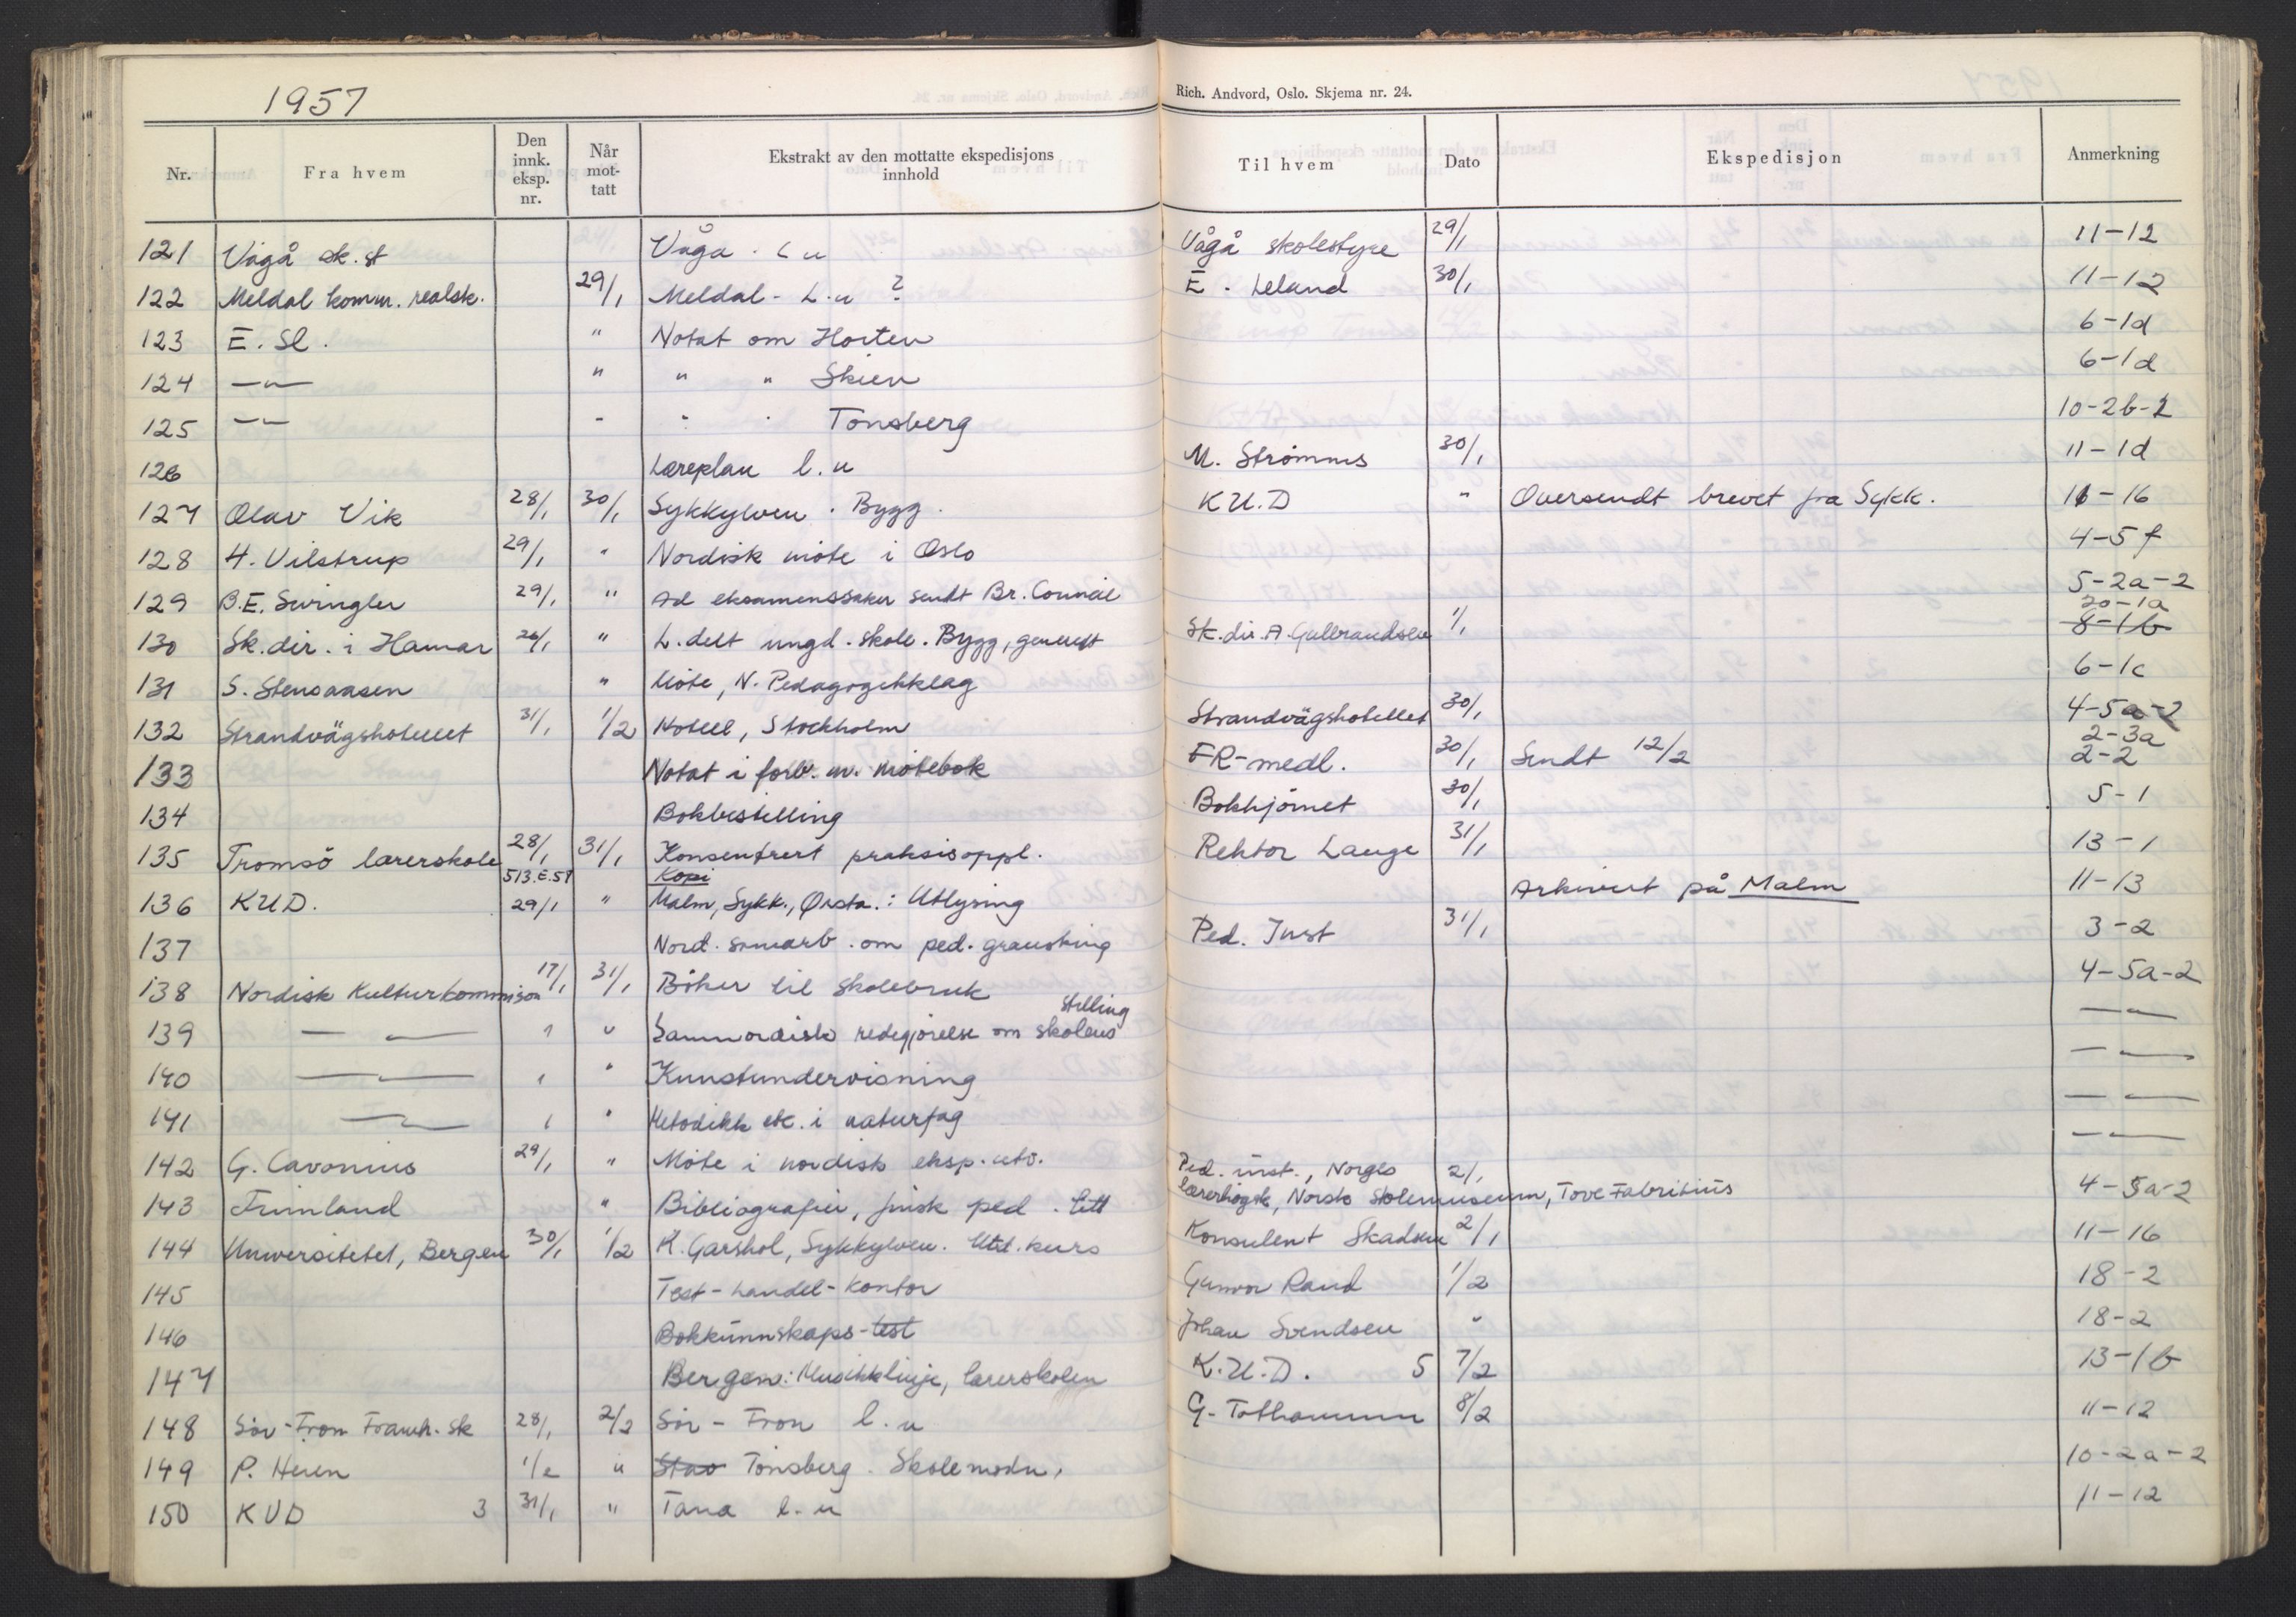 1957
Rich. Andvord, Oslo. Skjema nr. 24.
Nr. Fra hvem Den innk. eksp. nr. Når mot-tatt Ekstrakt av den mottatte ekspedisjons innhold Til hvem Dato Ekspedisjon Anmerkning
121 Vågå sk. st Våga . L u Vågå skolestyre 29/1 11-12
122 Meldal komm. realsk. 29/1 Meldal - L. u ? E. Leland 30/1 11-12
123 E. Sl. " Notat om Horten 6-1d
124 —"— " " " Skien 6-1d
125 —"— - " " Tønsberg 10-2b-2
126 Læreplan l. u M. Strømnes 30/1 11-1d
127 Olav Vik 28/1 30/1 Sykkylven . Bygg. K U. D " Oversendt brevet fra Sykk. 11-16
128 H. Vilstrup 29/1 " Nordisk møte i Oslo 4-5 f
129 B. E. Swingler 29/1 " Ad eksamenssaker sendt Br. Council 5-2a-2
20-1a
130 Sk. dir. i Hamar 26/1 " L. delt ungd. skole. Bygg, generelt Sk. dir. A. Gulbrandsen 1/1 8-1b
131 S. Stensaasen " Møte, N. Pedagogikklag 6-1c
132 Strandvägshotellet 31/1 1/2 Hotell, Stockholm Strandvägshotellet 30/1 4-5a-2
2-3a
133 Notat i forb. m. møtebok FR-medl. 30/1 Sendt 12/2 2-2
134 Bokbestilling Bokhjørnet 30/1 5-1
135 Tromsö lærerskole 28/1 31/1 Konsentrert praksisoppl. Rektor Lange 31/1 13-1
513.E.57 Kopi
136 KUD. 29/1 " Malm, Sykk., Ørsta.: Utlysing Arkivert på Malm 11-13
137 Nord. samarb. om ped. gransking Ped. Inst 31/1 3-2
138 Nordisk Kulturkommisjon 17/1 31/1 Bøker til skolebruk 4-5a-2
stilling
139 —"— " " Samnordisk redegjørelse om skolens —"—
140 —"— " " Kunstundervisning —"—
141 —"— " " Metodikk etc. i naturfag —"—
142 G. Cavonius 29/1 " Møte i nordisk eksp. utv. —"—
Ped. inst., Norges 2/1
143 Finnland " Bibliografier, finsk ped. litt lærerhøgsk, Norsk Skolemuseum, Tove Fabritius 4-5a-2
144 Universitetet, Bergen 30/1 1/2 K. Garshol, Sykkylven. Utd. kurs Konsulent Skadsem 2/1 11-16
145 Test-handel-kontor Gunvor Rand 1/2 18-2
146 Bokkunnskaps-test Johan Svendsen " 18-2
147 Bergen: Musikklinje, lærerskolen K. U. D. 5 7/2 13-1b
148 Sør-Fron Framh. sk 28/1 2/2 Sør-Fron l. u G. Tofthammer 8/2 11-12
149 P. Heien 1/2 " Stav Tønsberg. Skolemodn. 10-2a-2
150 KUD 3 31/1 " Tana l. u 11-12